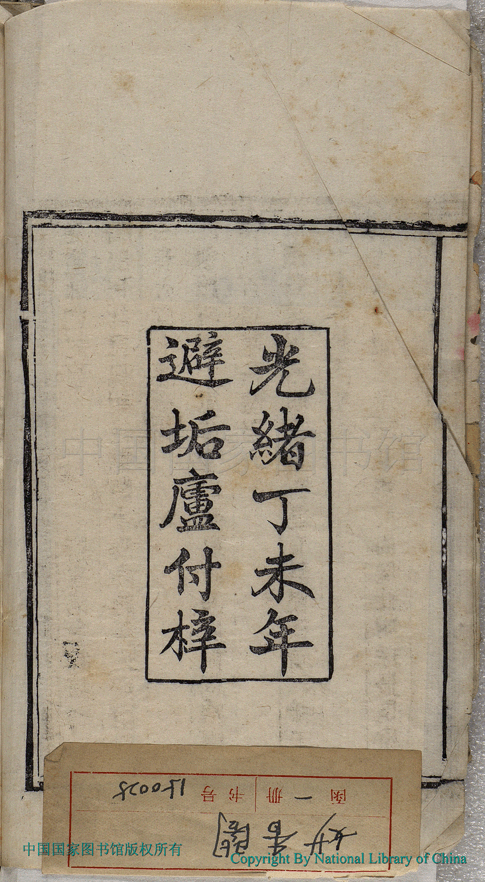 光緒丁未年
避垢廬付梓
函一册 书号 150025
妙香閣
中国国家图书馆版权所有
Copyright By National Library of China